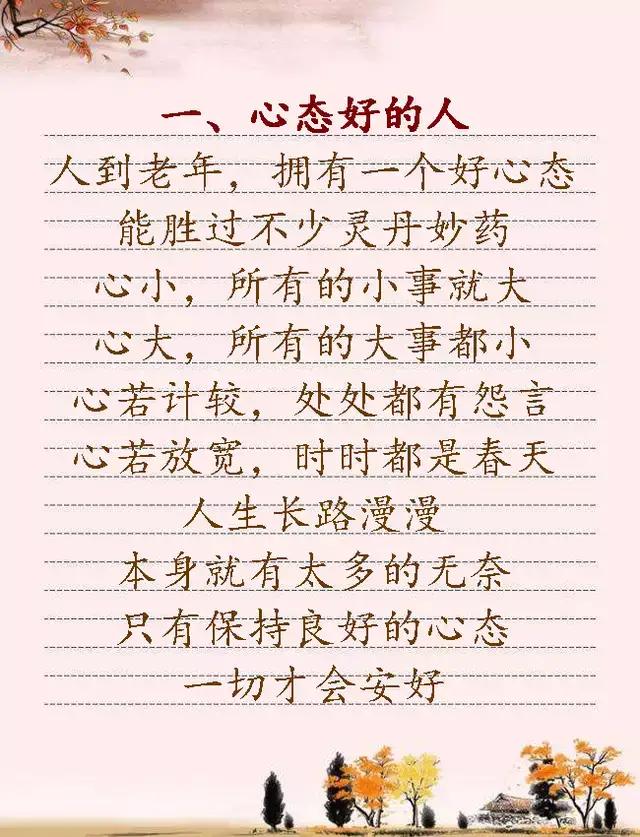 一、心态好的人
人到老年，拥有一个好心态
能胜过不少灵丹妙药
心小，所有的小事就大
心大，所有的大事都小
心若计较，处处都有怨言
心若放宽，时时都是春天
人生长路漫漫
本身就有太多的无奈
只有保持良好的心态
一切才会安好